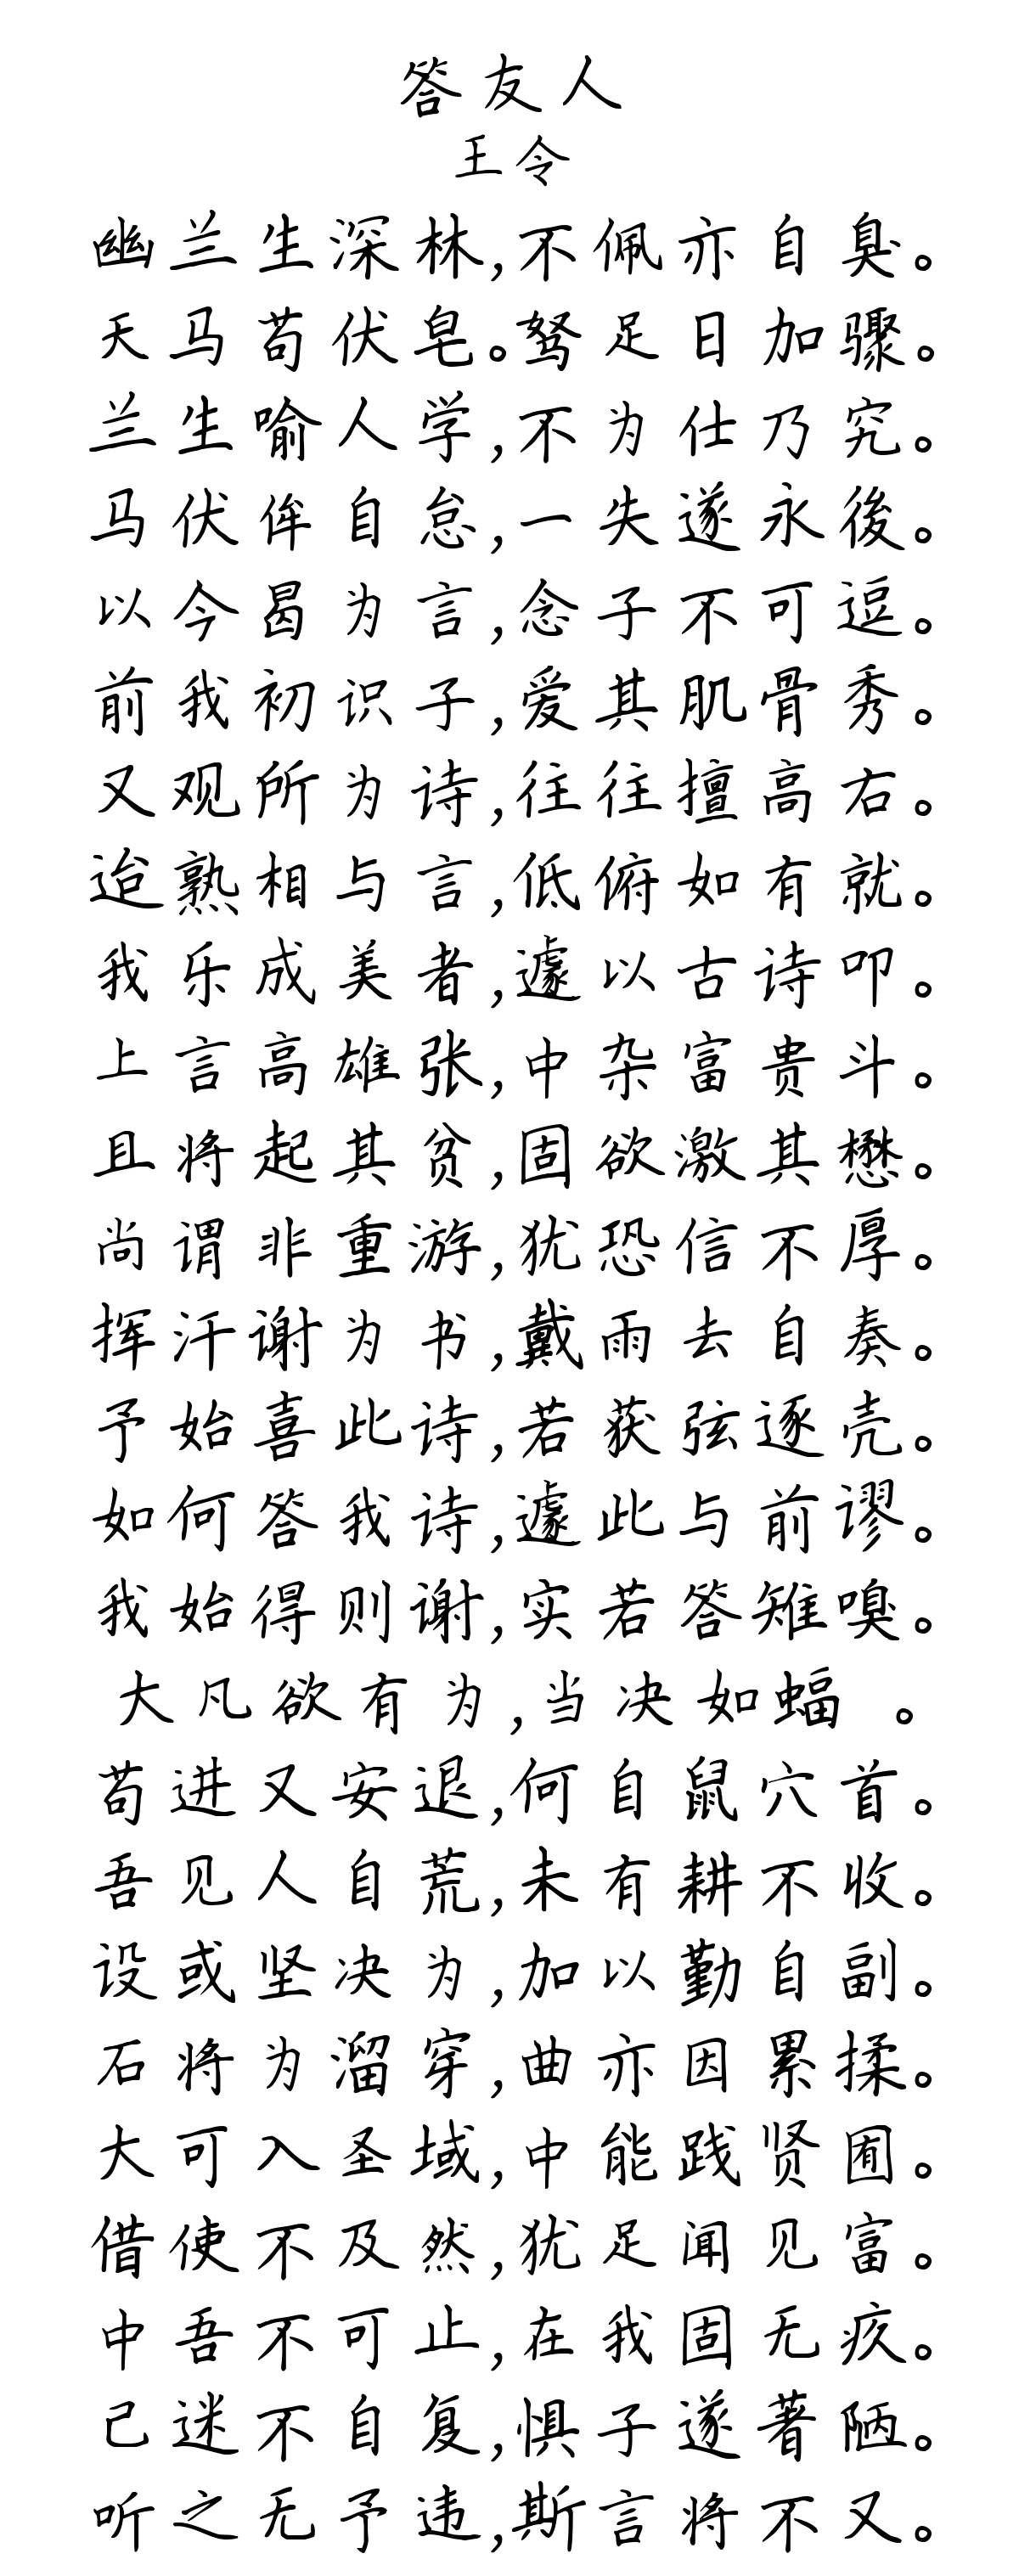 答友人
王令
幽兰生深林,不佩亦自臭。
天马苟伏皂。驽足日加骤。
兰生喻人学,不为仕乃究。
马伏侔自怠,一失遂永後。
以今曷为言,念子不可逗。
前我初识子,爱其肌骨秀。
又观所为诗,往往擅高右。
迨熟相与言,低俯如有就。
我乐成美者,遽以古诗叩。
上言高雄张,中杂富贵斗。
且将起其贫,固欲激其懋。
尚谓非重游,犹恐信不厚。
挥汗谢为书,戴雨去自奏。
予始喜此诗,若获弦逐壳。
如何答我诗,遽此与前谬。
我始得则谢,实若答雉嗅。
大凡欲有为,当决如蝠 。
苟进又安退,何自鼠穴首。
吾见人自荒,未有耕不收。
设或坚决为,加以勤自副。
石将为溜穿,曲亦因累揉。
大可入圣域,中能践贤囿。
借使不及然,犹足闻见富。
中吾不可止,在我固无疚。
己迷不自复,惧子遂著陋。
听之无予违,斯言将不又。